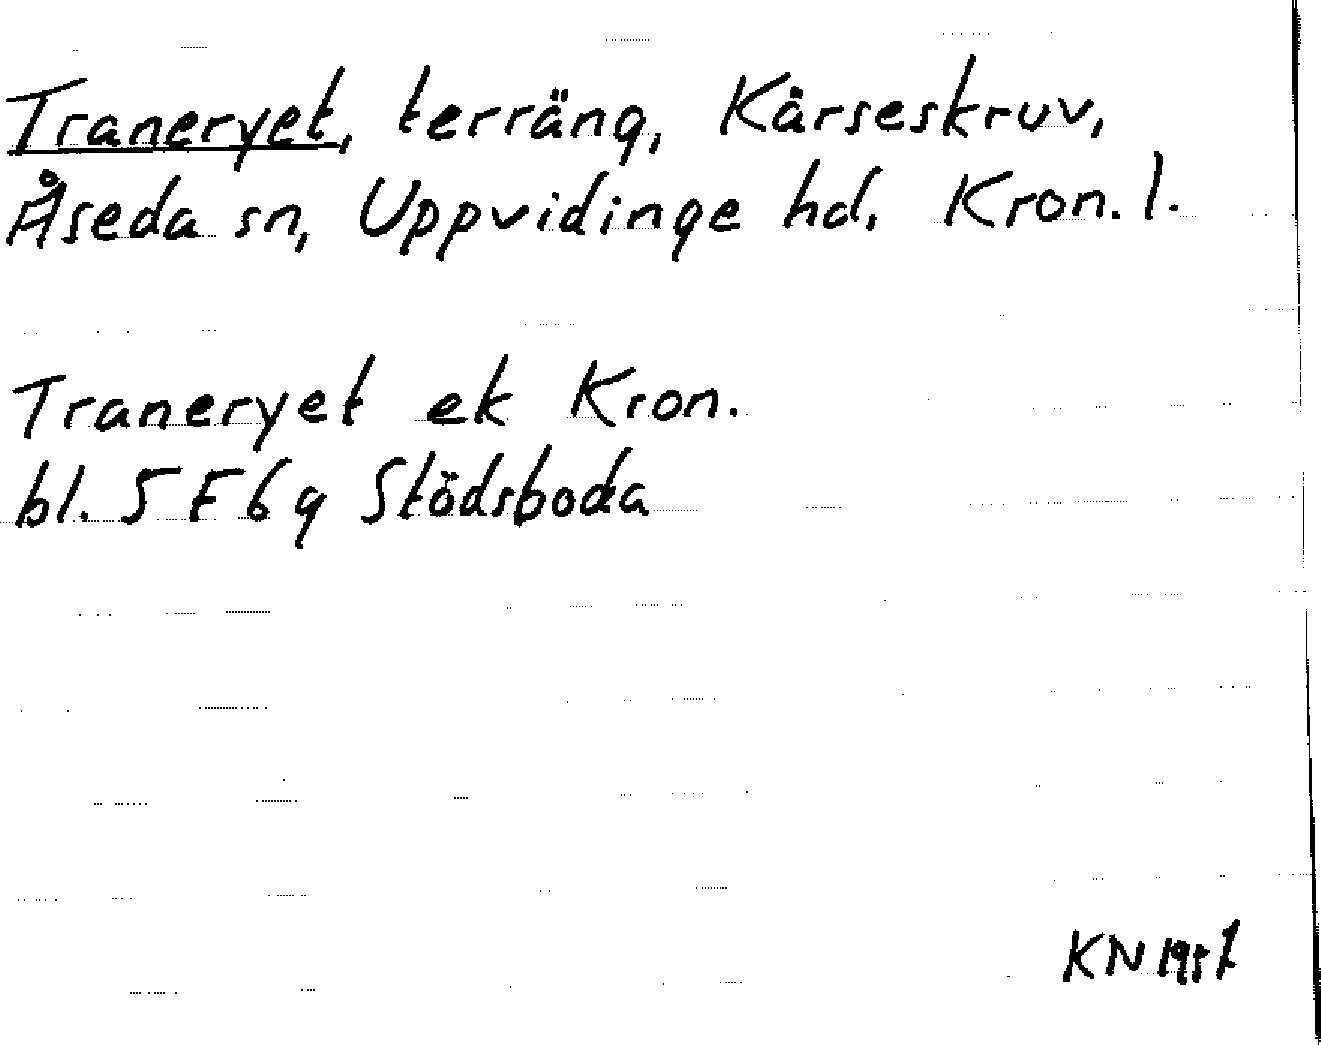 Traneryet, terräng, Kärseskruv,
Åseda sn, Uppvidinge hd. Kron. l.
Traneryet ek Kron.
bl. 5 F 6 g Stödsboda
KN 1957